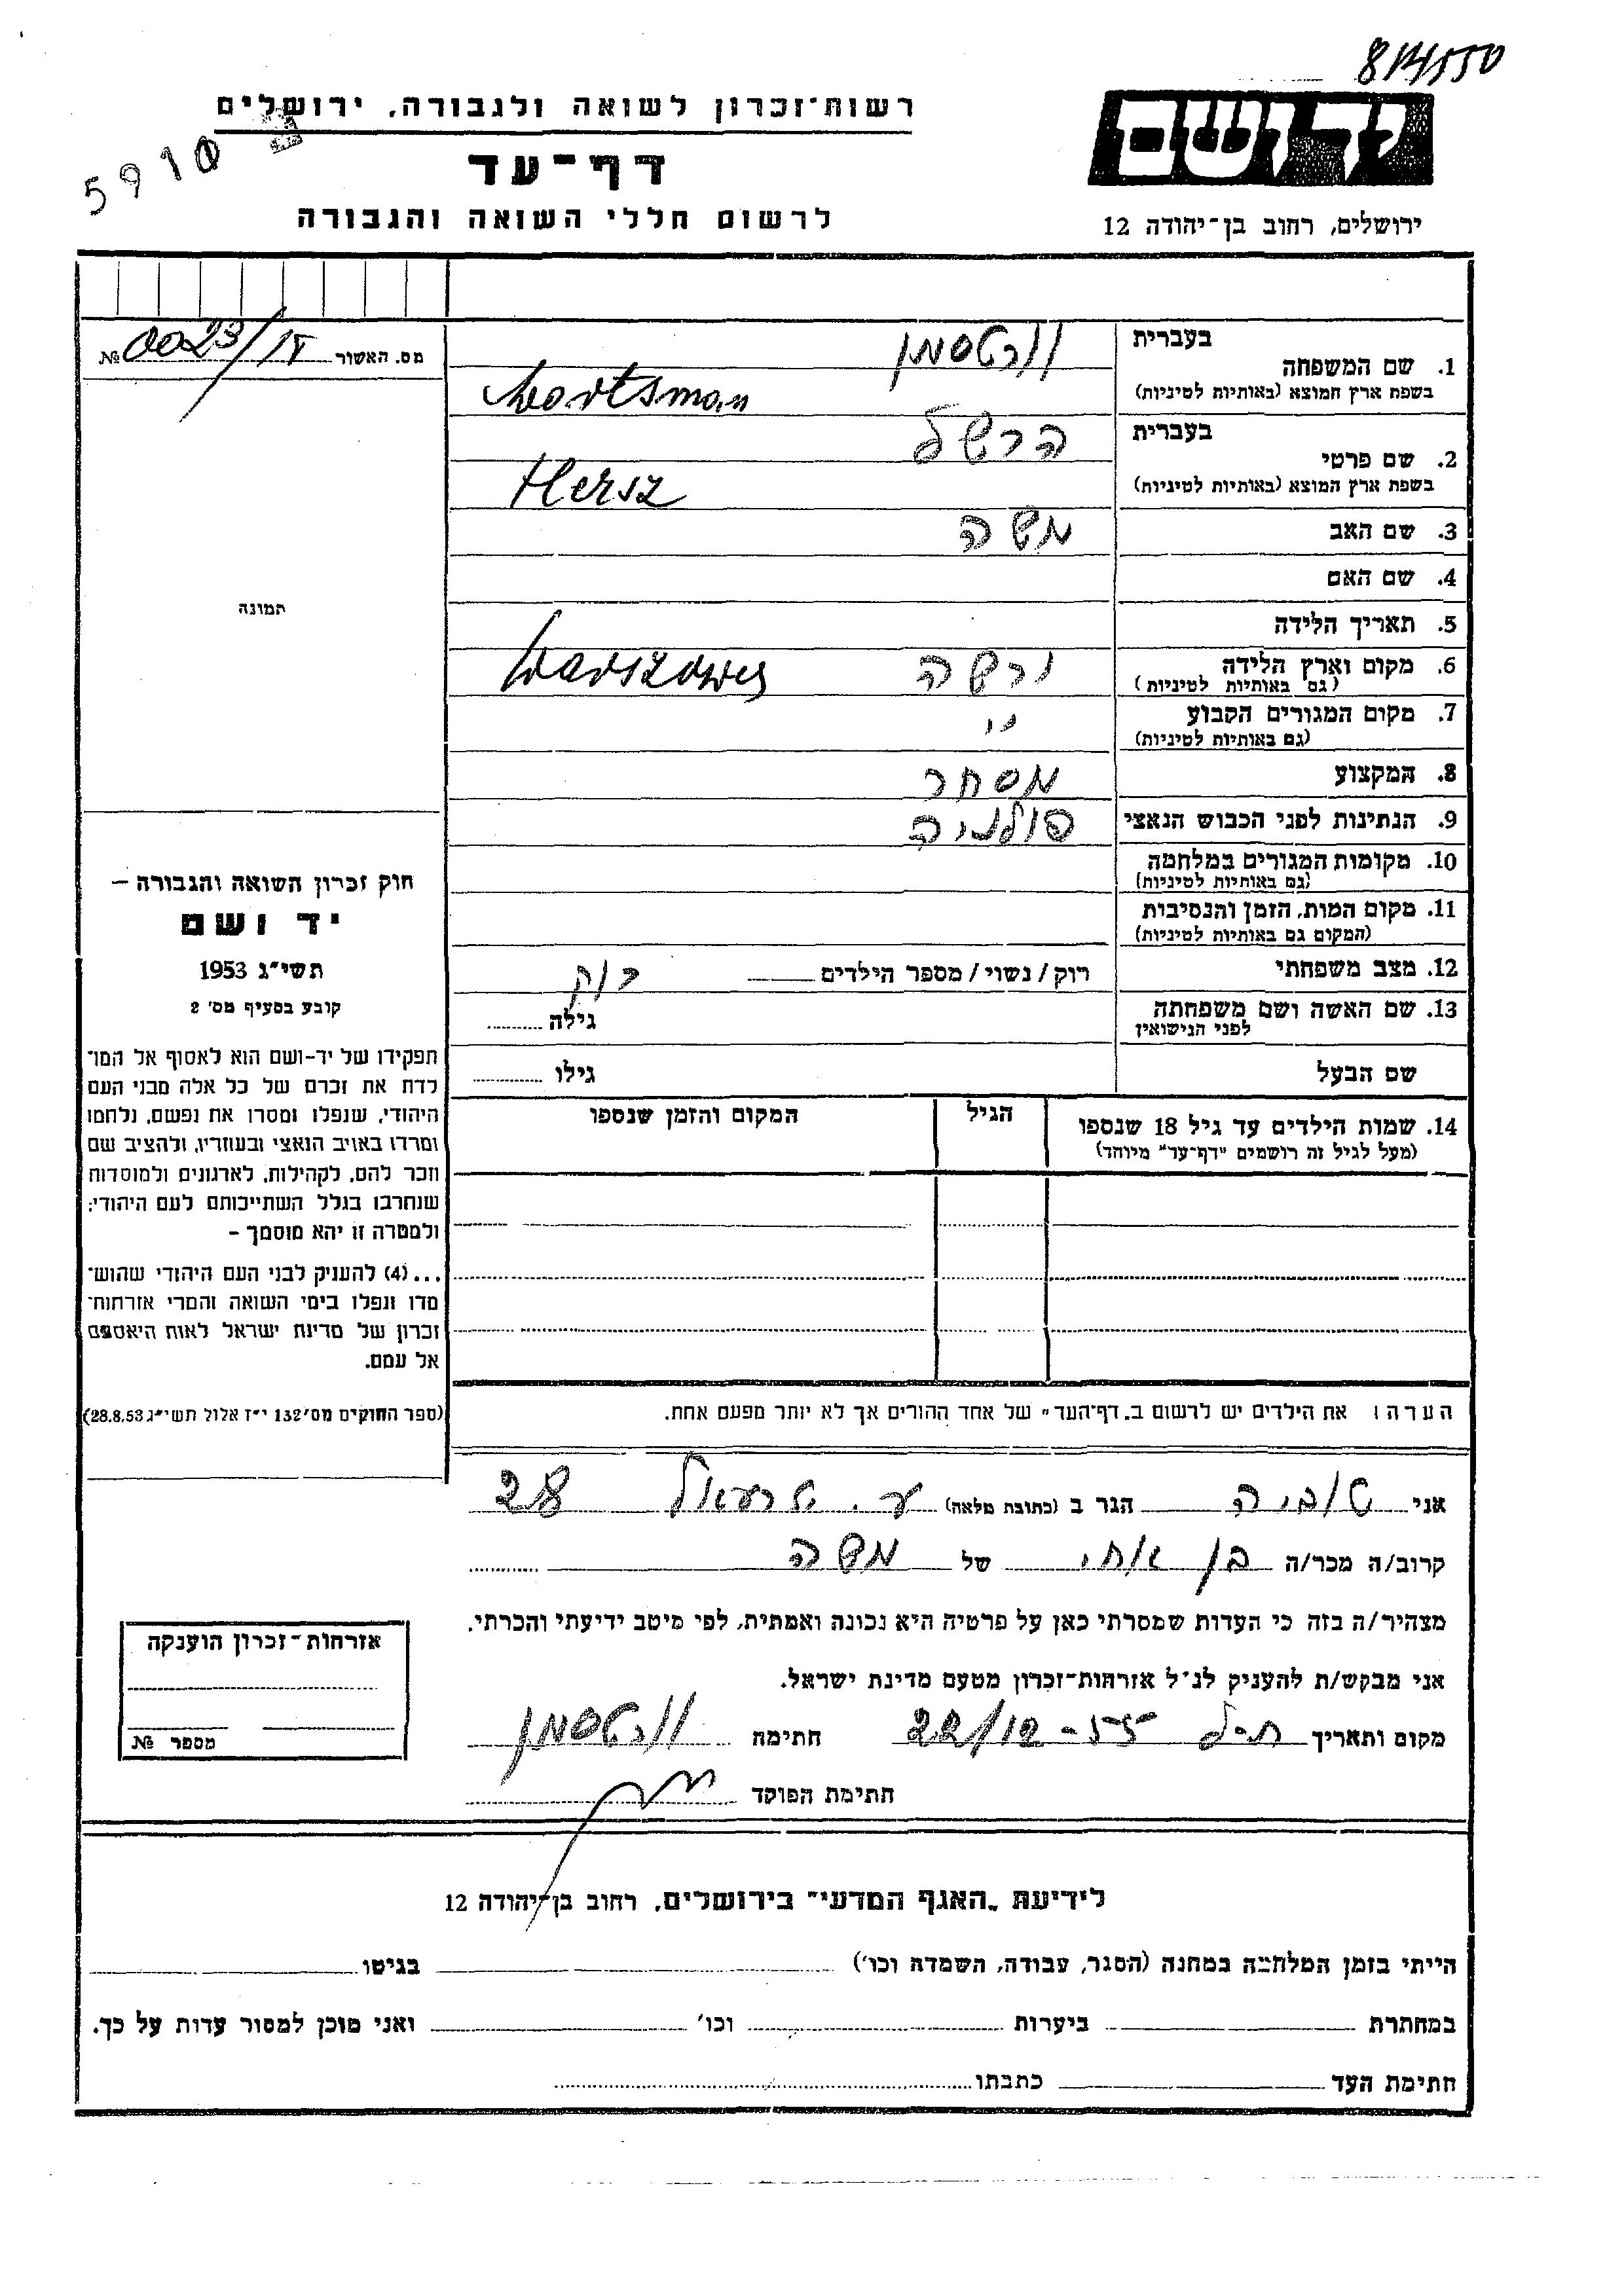 814550
רשות־זכרון לשואה ולגבורה, ירושלים
5910
דף־עד
לרשום חללי השואה והגבורה
יד ושם
ירושלים, רחוב בן־יהודה 12
מס. האשור № 0023/
1. שם המשפחה
בעברית וורטסמן
בשפת ארץ המוצא (באותיות לטיניות) Wortsman
2. שם פרטי
בעברית הרשל
בשפת ארץ המוצא (באותיות לטיניות) Hersz
3. שם האב משה
4. שם האם
5. תאריך הלידה
6. מקום וארץ הלידה ורשה
(גם באותיות לטיניות)
7. מקום המגורים הקבוע "
(גם באותיות לטיניות)
8. המקצוע מסחר
9. הנתינות לפני הכבוש הנאצי פולניה
10. מקומות המגורים במלחמה
(גם באותיות לטיניות)
11. מקום המות, הזמן והנסיבות
(המקום גם באותיות לטיניות)
12. מצב משפחתי רוק / נשוי / מספר הילדים רוק
13. שם האשה ושם משפחתה
לפני הנישואין גילה
שם הבעל גילו
14. שמות הילדים עד גיל 18 שנספו הגיל המקום והזמן שנספו
(מעל לגיל זה רושמים "דף־עד" מיוחד)
תמונה
חוק זכרון השואה והגבורה –
יד ושם
תשי"ג 1953
קובע בסעיף מס' 2
תפקידו של יד-ושם הוא לאסוף אל המו־
לדת את זכרם של כל אלה מבני העם
היהודי, שנפלו ומסרו את נפשם, נלחמו
ומרדו באויב הנאצי ובעוזריו, ולהציב שם
וזכר להם, לקהילות, לארגונים ולמוסדות
שנחרבו בגלל השתייכותם לעם היהודי;
ולמטרה זו יהא מוסמך –
...(4) להעניק לבני העם היהודי שהוש־
מדו ונפלו בימי השואה והמרי אזרחות־
זכרון של מדינת ישראל לאות היאספם
אל עמם.
(ספר החוקים מס' 132 י"ז אלול תשי"ג 28.8.53)
הערה: את הילדים יש לרשום ב"דף־העד" של אחד ההורים אך לא יותר מפעם אחת.
אני טוביה הגר ב (כתובת מלאה) 28
קרוב/ה מכר/ה בן אחי של משה
מצהיר/ה בזה כי העדות שמסרתי כאן על פרטיה היא נכונה ואמתית, לפי מיטב ידיעתי והכרתי.
אני מבקש/ת להעניק לנ"ל אזרחות־זכרון מטעם מדינת ישראל.
מקום ותאריך 22/12-55 חתימה וורטסמן
חתימת הפוקד
אזרחות־זכרון הוענקה
מספר №
לידיעת "האגף המדעי" בירושלים, רחוב בן־יהודה 12
הייתי בזמן המלחמה במחנה (הסגר, עבודה, השמדה וכו') בגיטו
במחתרת ביערות וכו' ואני מוכן למסור עדות על כך.
חתימת העד כתבתו